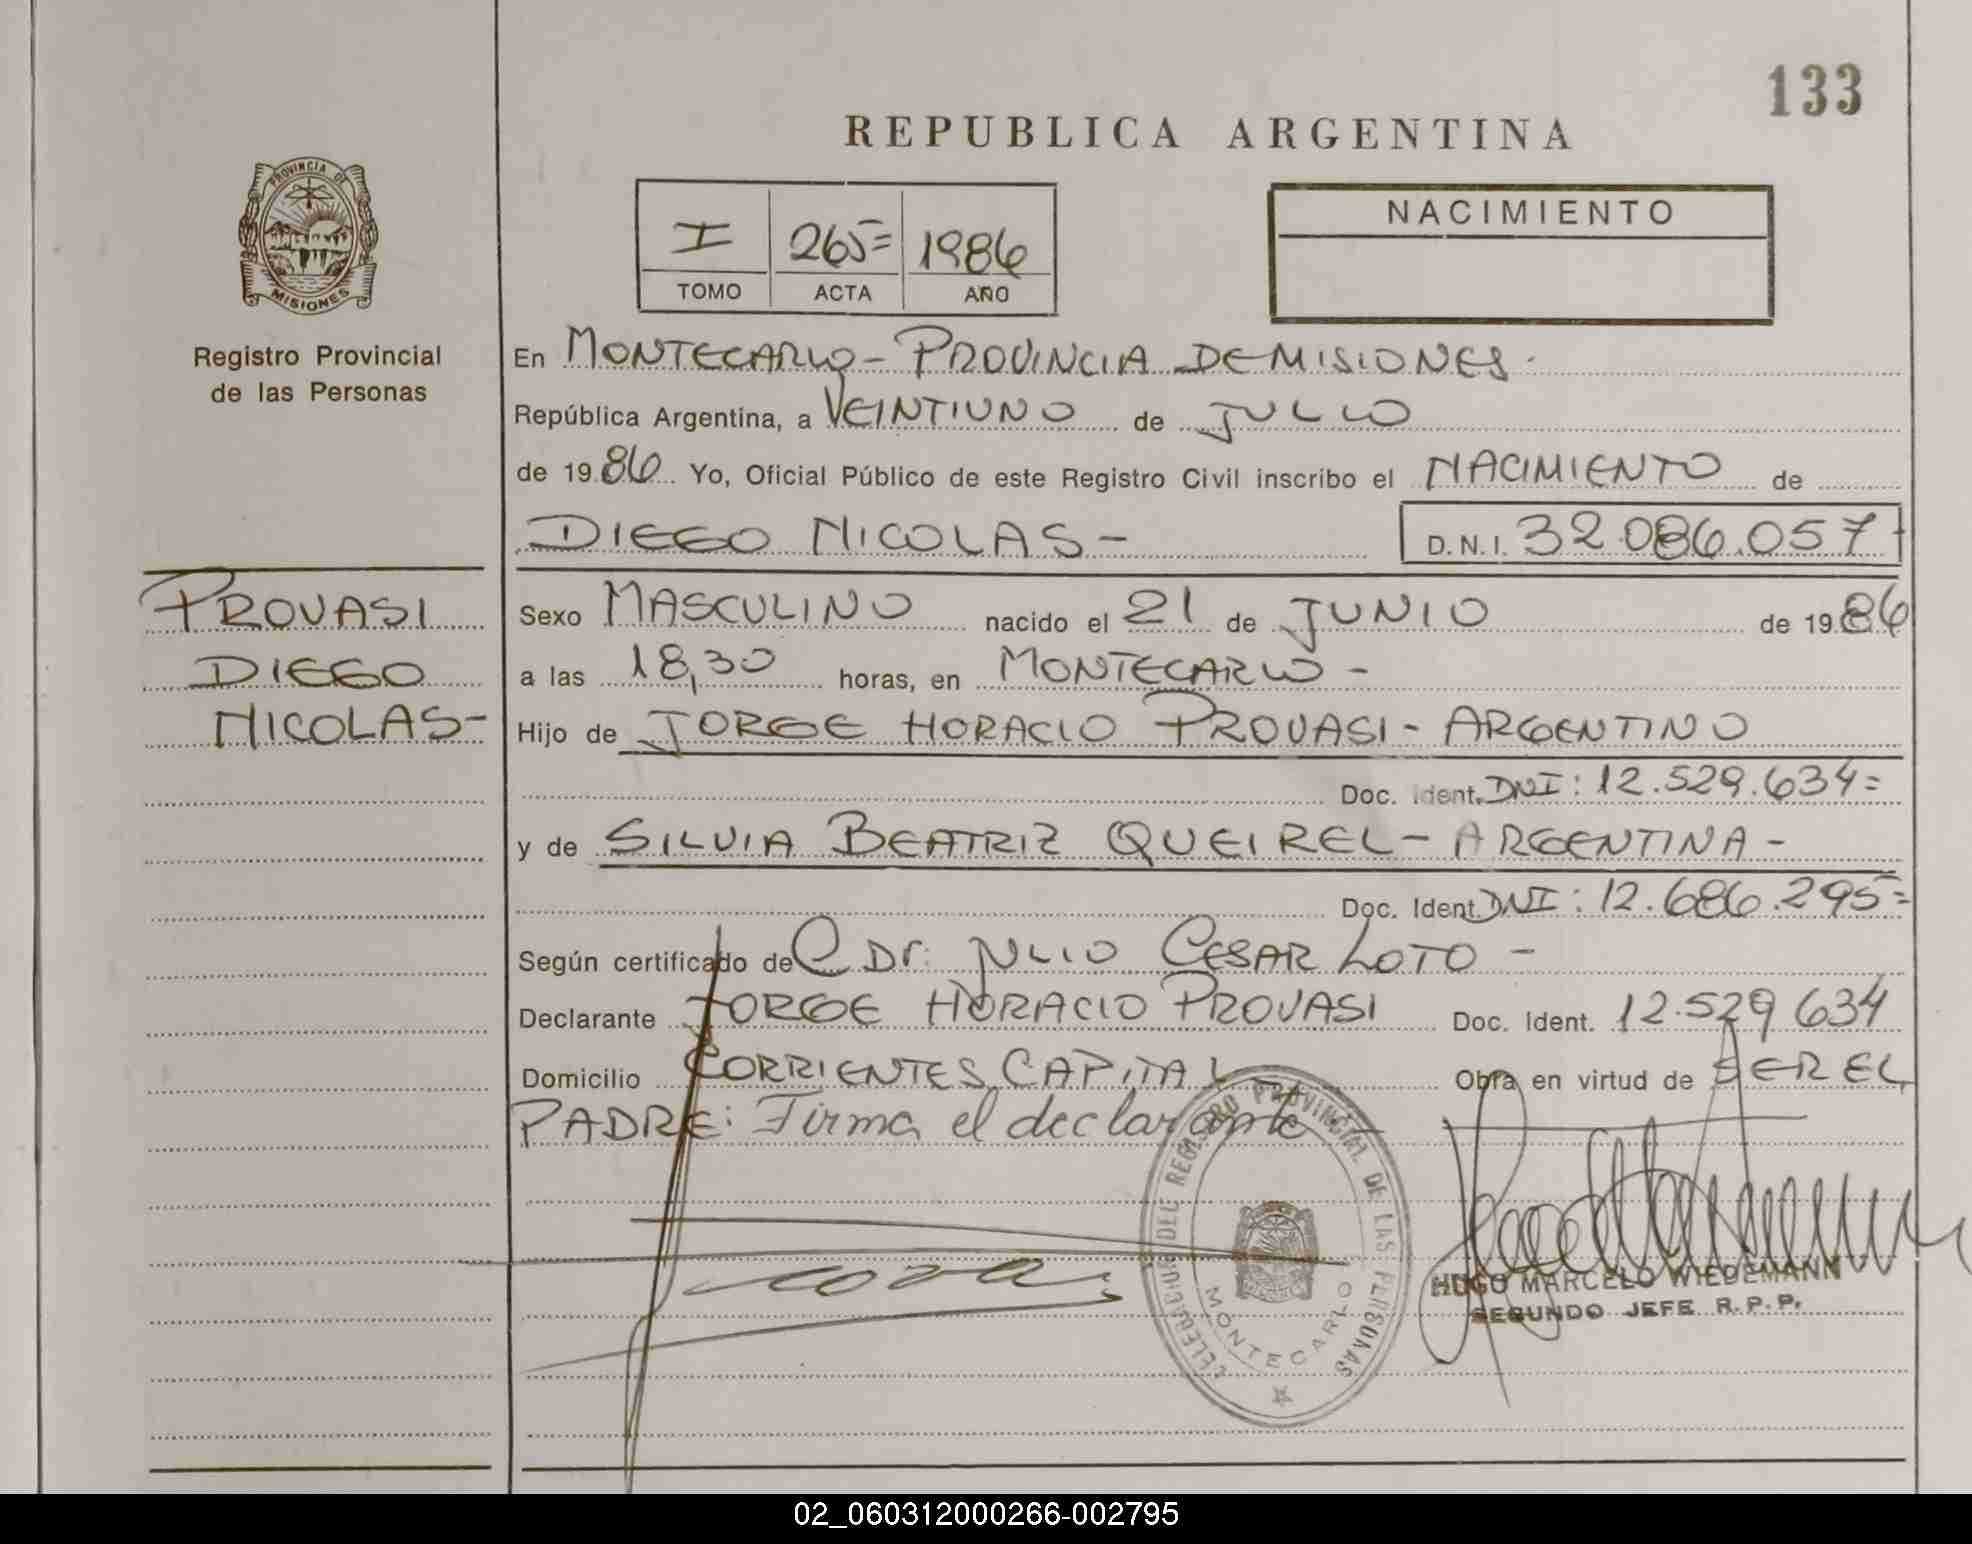 133
REPUBLICA ARGENTINA
PROVINCIA DE
MISIONES
Registro Provincial
de las Personas
I 265= 1986
TOMO ACTA AÑO
NACIMIENTO
En MONTECARLO - PROVINCIA DE MISIONES.
República Argentina, a VEINTIUNO de JULIO
de 1986 Yo, Oficial Público de este Registro Civil inscribo el NACIMIENTO de
DIEGO NICOLAS - D.N.I. 32.086.057
PROVASI
DIEGO
NICOLAS-
Sexo MASCULINO nacido el 21 de JUNIO de 1986
a las 18,30 horas, en MONTECARLO -
Hijo de JORGE HORACIO PROVASI - ARGENTINO
Doc. Ident. DNI: 12.529.634=
y de SILVIA BEATRIZ QUEIREL - ARGENTINA -
Doc. Ident. DNI: 12.686.295=
Según certificado de Dr. JULIO CESAR LOTO -
Declarante JORGE HORACIO PROVASI Doc. Ident. 12.529 634
Domicilio CORRIENTES CAPITAL Obra en virtud de SER EL
PADRE: Firma el declarante
DELEGACION DEL REGISTRO PROVINCIAL DE LAS PERSONAS
MONTECARLO
HUGO MARCELO WIEDEMANN
SEGUNDO JEFE R.P.P.
02_060312000266-002795